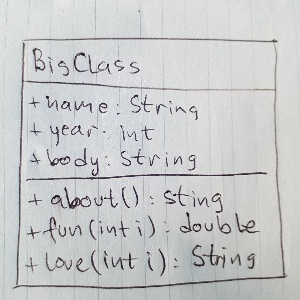 BigClass
+ name: String
+ year: int
+ body: String
+ about(): sting
+ fun(int i): double
+ love(int i): String